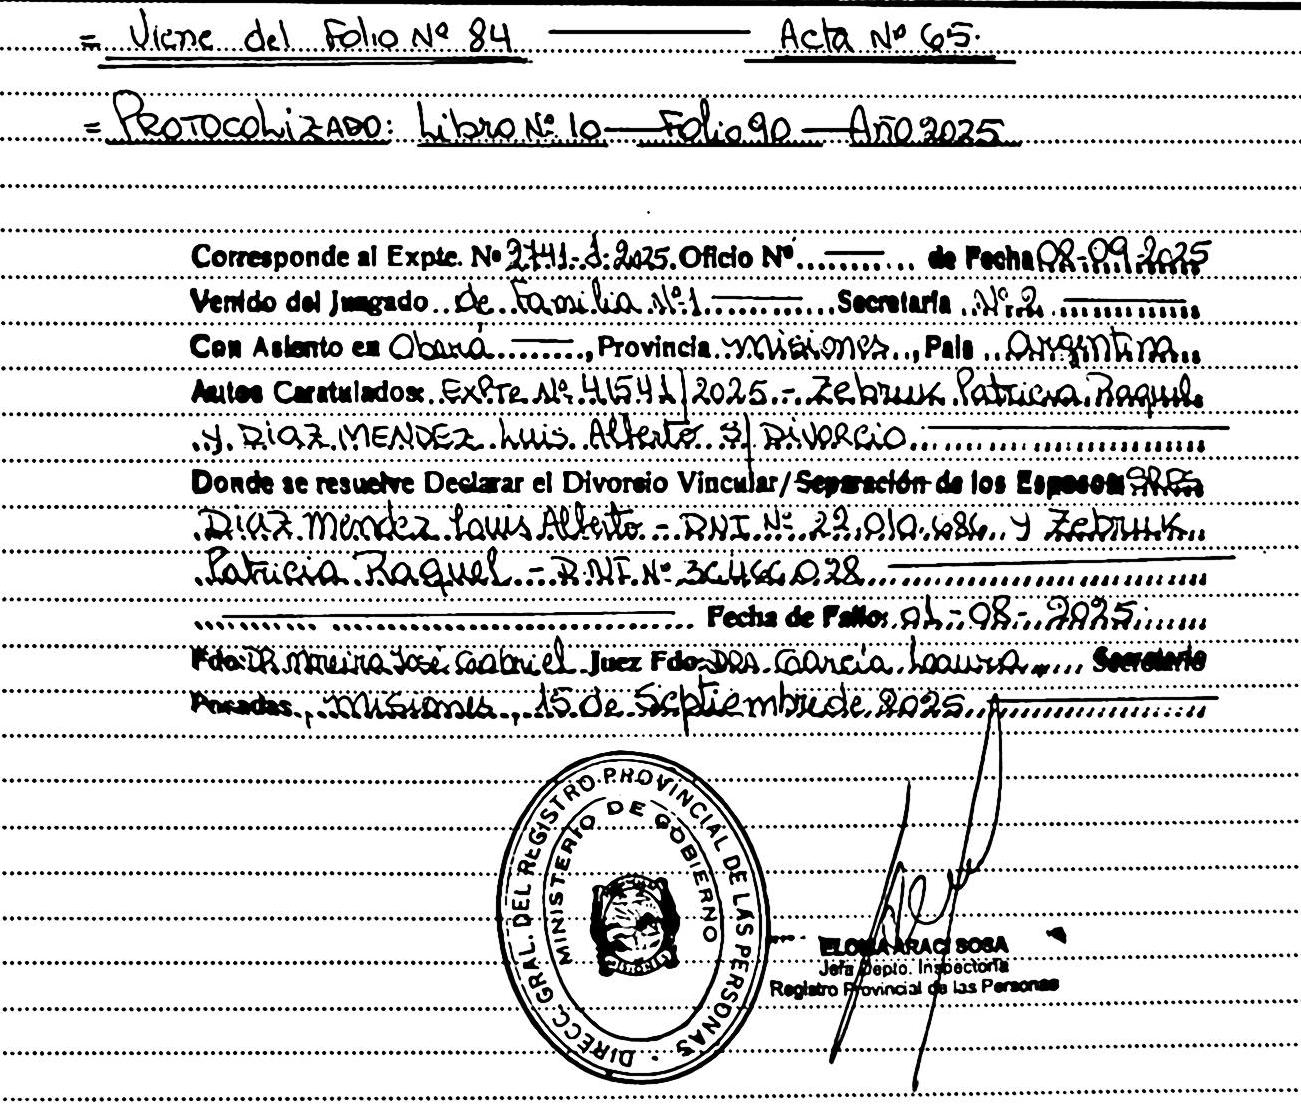 = Viene del Folio Nº 84 — Acta Nº 65.
= PROTOCOLIZADO: Libro Nº 10 — Folio 90 — Año 2025
Corresponde al Expte. Nº 2741-J-2025. Oficio Nº ........ de Fecha 08-09-2025
Venido del Juzgado de Familia Nº 1 Secretaría Nº 2
Con Asiento en Oberá, Provincia Misiones, País Argentina
Autos Caratulados: EXPTE Nº 41541/2025.- Zebruk Patricia Raquel
y DIAZ MENDEZ Luis Alberto S/ DIVORCIO
Donde se resuelve Declarar el Divorcio Vincular/Separación de los Esposos SRES
DIAZ Mendez Luis Alberto - DNI Nº 22.010.686 y Zebruk
Patricia Raquel - D.N.I. Nº 36.466.028
Fecha de Fallo: 01-08-2025
Fdo: DR. Moreira José Gabriel Juez Fdo: DRA. García Laura Secretario
Posadas, Misiones, 15 de Septiembre de 2025
DIRECC. GRAL. DEL REGISTRO PROVINCIAL DE LAS PERSONAS
MINISTERIO DE GOBIERNO
ARACI SOSA
Jefa Depto. Inspectoría
Registro Provincial de las Personas